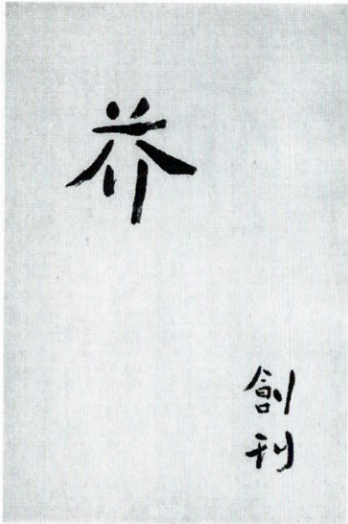 芥
創刊